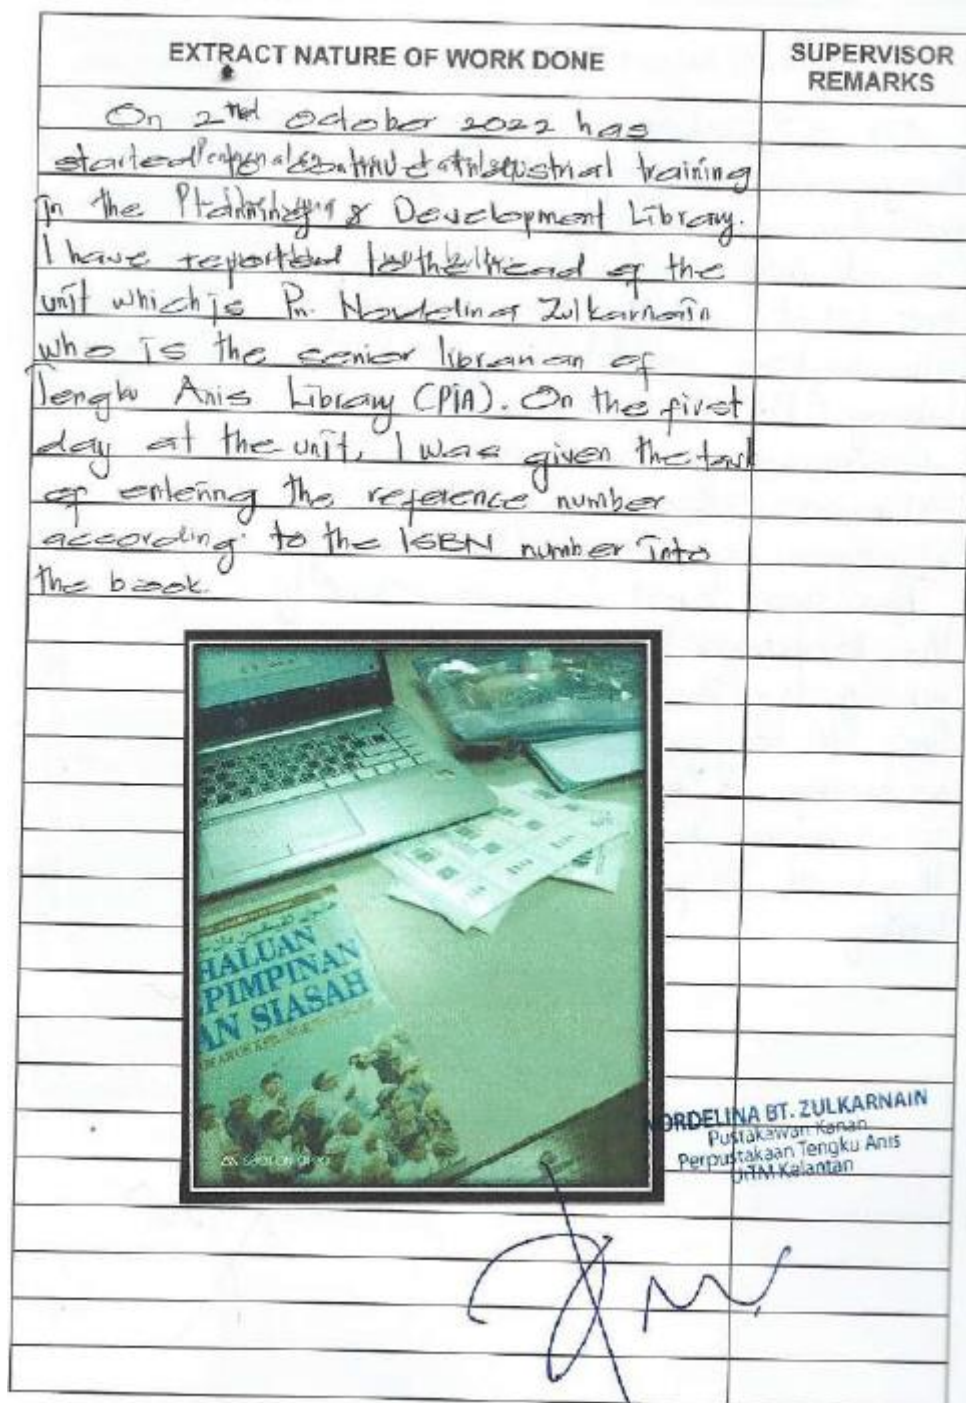 EXTRACT NATURE OF WORK DONE
SUPERVISOR
REMARKS
On 2nd October 2022 has
started industrial training
in the & Development Library.
I have reported to the Head of the
unit which is Pn. Nordelina Zulkarnain
who is the senior librarian of
Tengku Anis Library (PTA). On the first
day at the unit, I was given the task
of entering the reference number
according to the ISBN number into
the book.
HALUAN
PIMPINAN
AN SIASAH
ORDELINA BT. ZULKARNAIN
Pustakawan Kanan
Perpustakaan Tengku Anis
UiTM Kelantan